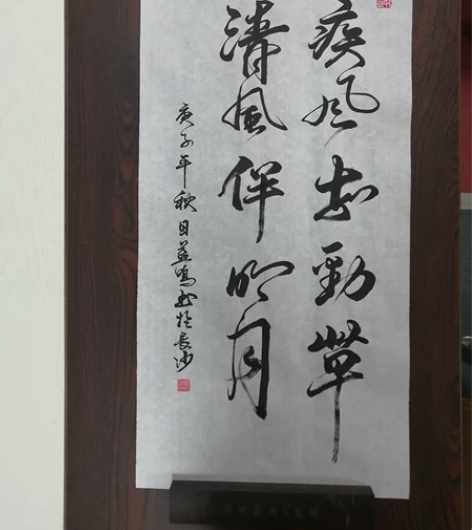 疾风知劲草
清风伴明月
庚子年秋日益鸣书于长沙